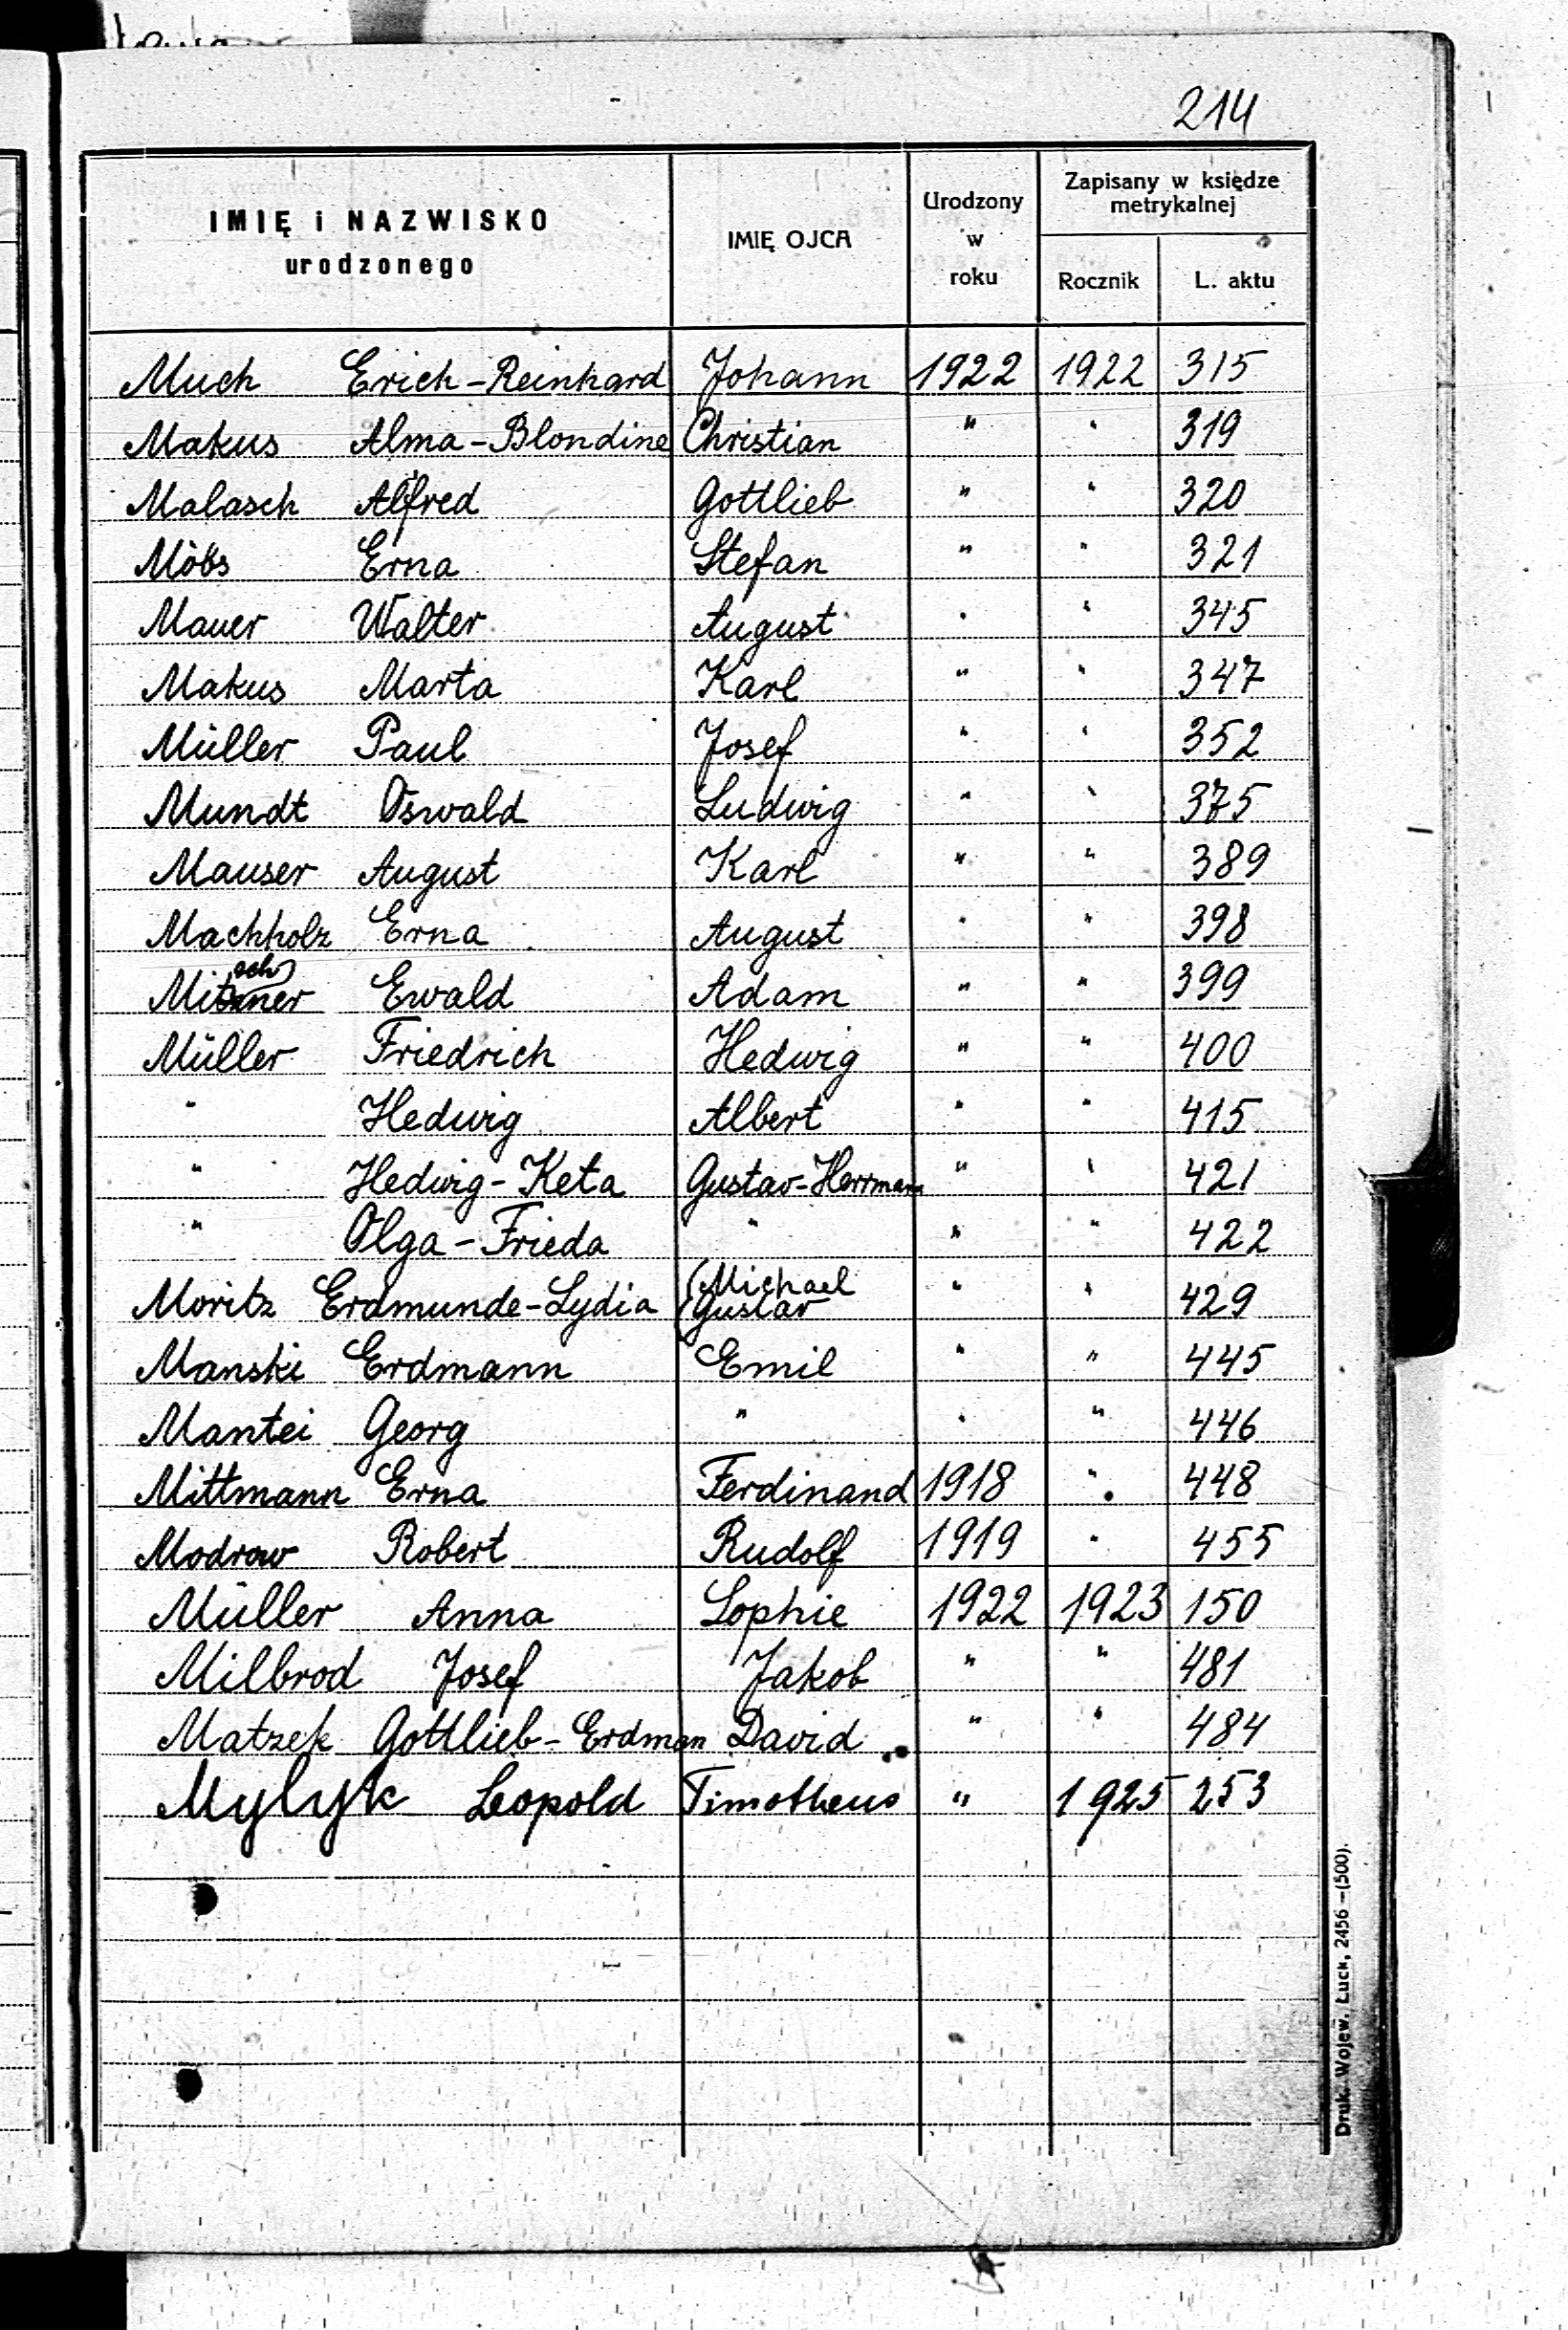 214
IMIĘ i NAZWISKO urodzonego | IMIĘ OJCA | Urodzony w roku | Zapisany w księdze metrykalnej
Rocznik | L. aktu
Much Erich-Reinhard Johann 1922 1922 315
Makus Alma-Blondine Christian " " 319
Malasch Alfred Gottlieb " " 320
Möbs Erna Stefan " " 321
Mauer Walter August " " 345
Makus Marta Karl " " 347
Müller Paul Josef " " 352
Mundt Oswald Ludwig " " 375
Mauser August Karl " " 389
Machholz Erna August " " 398
Mitschner Ewald Adam " " 399
Müller Friedrich Hedwig " " 400
" Hedwig Albert " " 415
" Hedwig-Keta Gustav-Herrmann " " 421
" Olga-Frieda " " " 422
Moritz Erdmunde-Lydia (Michael Gustav " " 429
Manski Erdmann Emil " " 445
Mantei Georg " " " 446
Mittmann Erna Ferdinand 1918 " 448
Modrow Robert Rudolf 1919 " 455
Müller Anna Sophie 1922 1923 150
Milbrod Josef Jakob " " 481
Matzek Gottlieb-Erdman David " " 484
Mylyk Leopold Timotheus " 1925 253
Druk. Wojew. Łuck, 2456 –(500).